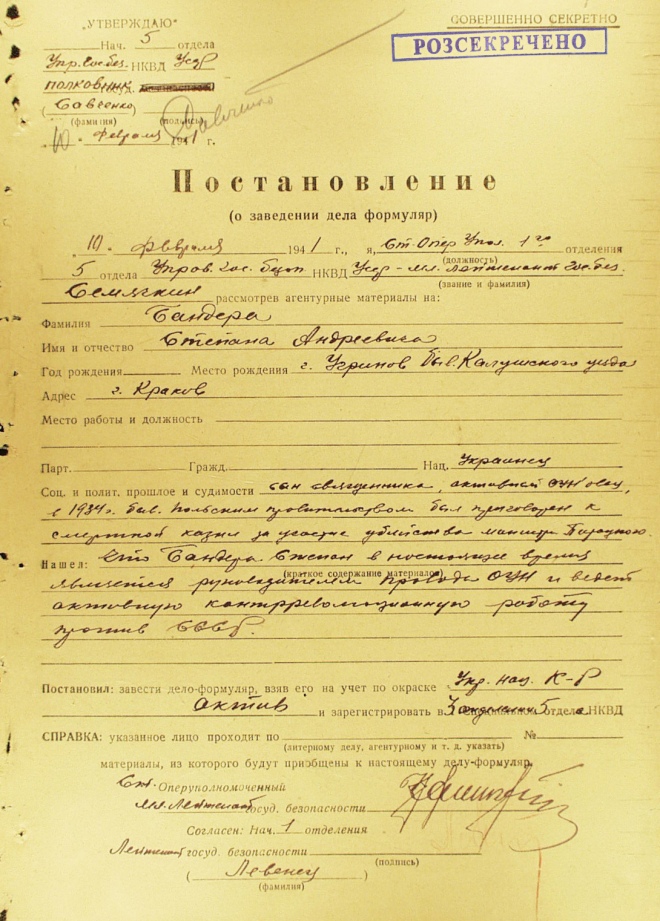 „УТВЕРЖДАЮ"
СОВЕРШЕННО СЕКРЕТНО
РОЗСЕКРЕЧЕНО
Нач. 5 отдела
Упр. Гос. без. НКВД УССР
полковник
(Савченко)
(фамилия) (подпись)
„10" февраля 1941 г.
Постановление
(о заведении дела формуляр)
„10" февраля 1941 г., я, Ст. Опер. Упол. 1го отделения
(должность)
5 отдела Управ. Гос. Безоп НКВД УССР – мл. лейтенант Гос. без.
(звание и фамилия)
рассмотрев агентурные материалы на:
Фамилия Бандера
Имя и отчество Степана Андреевича
Год рождения Место рождения г. Угринов был. Калушского уезда
Адрес г. Краков
Место работы и должность
Парт. Гражд. Нац. Украинец
Соц. и полит. прошлое и судимости сын священника, активный ОУНовец,
в 1934 г. был. польским правительством был приговорен к
смертной казни за участие убийства министра Перацкого.
Нашел: Что Бандера Степан в настоящее время
(краткое содержание материалов)
является руководителем провода ОУН и ведет
активную контрреволюционную работу
против СССР.
Постановил: завести дело-формуляр, взяв его на учет по окраске Укр. нац. К-Р
актив и зарегистрировать в 5 отдела НКВД
СПРАВКА: указанное лицо проходит по №
(литерному делу, агентурному и т. д. указать)
материалы, из которого будут приобщены к настоящему делу-формуляр.
Ст. Оперуполномоченный
мл. Лейтенант госуд. безопасности
Согласен: Нач. 1 отделения
Лейтенант госуд. безопасности
(подпись)
(Левенец)
(фамилия)